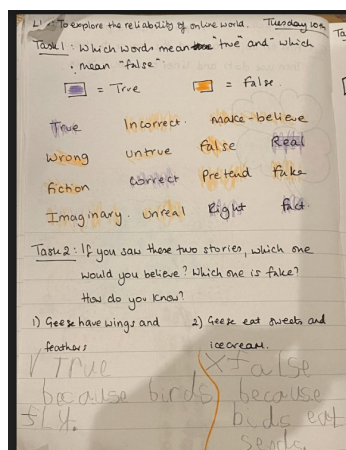 L1 : To explore the reliability of online world. Tuesday 10th
Task 1 : Which words mean "true" and which
mean "false".
= True = False.
True Incorrect. Make-believe
Wrong untrue false Real
fiction correct Pretend fake
Imaginary. unreal Right fact.
Task 2 : If you saw these two stories, which one
would you believe? Which one is fake?
How do you know?
1) Geese have wings and 2) Geese eat sweets and
feathers icecream.
√ True X false
because birds because
fLy. birds eat
seeds.